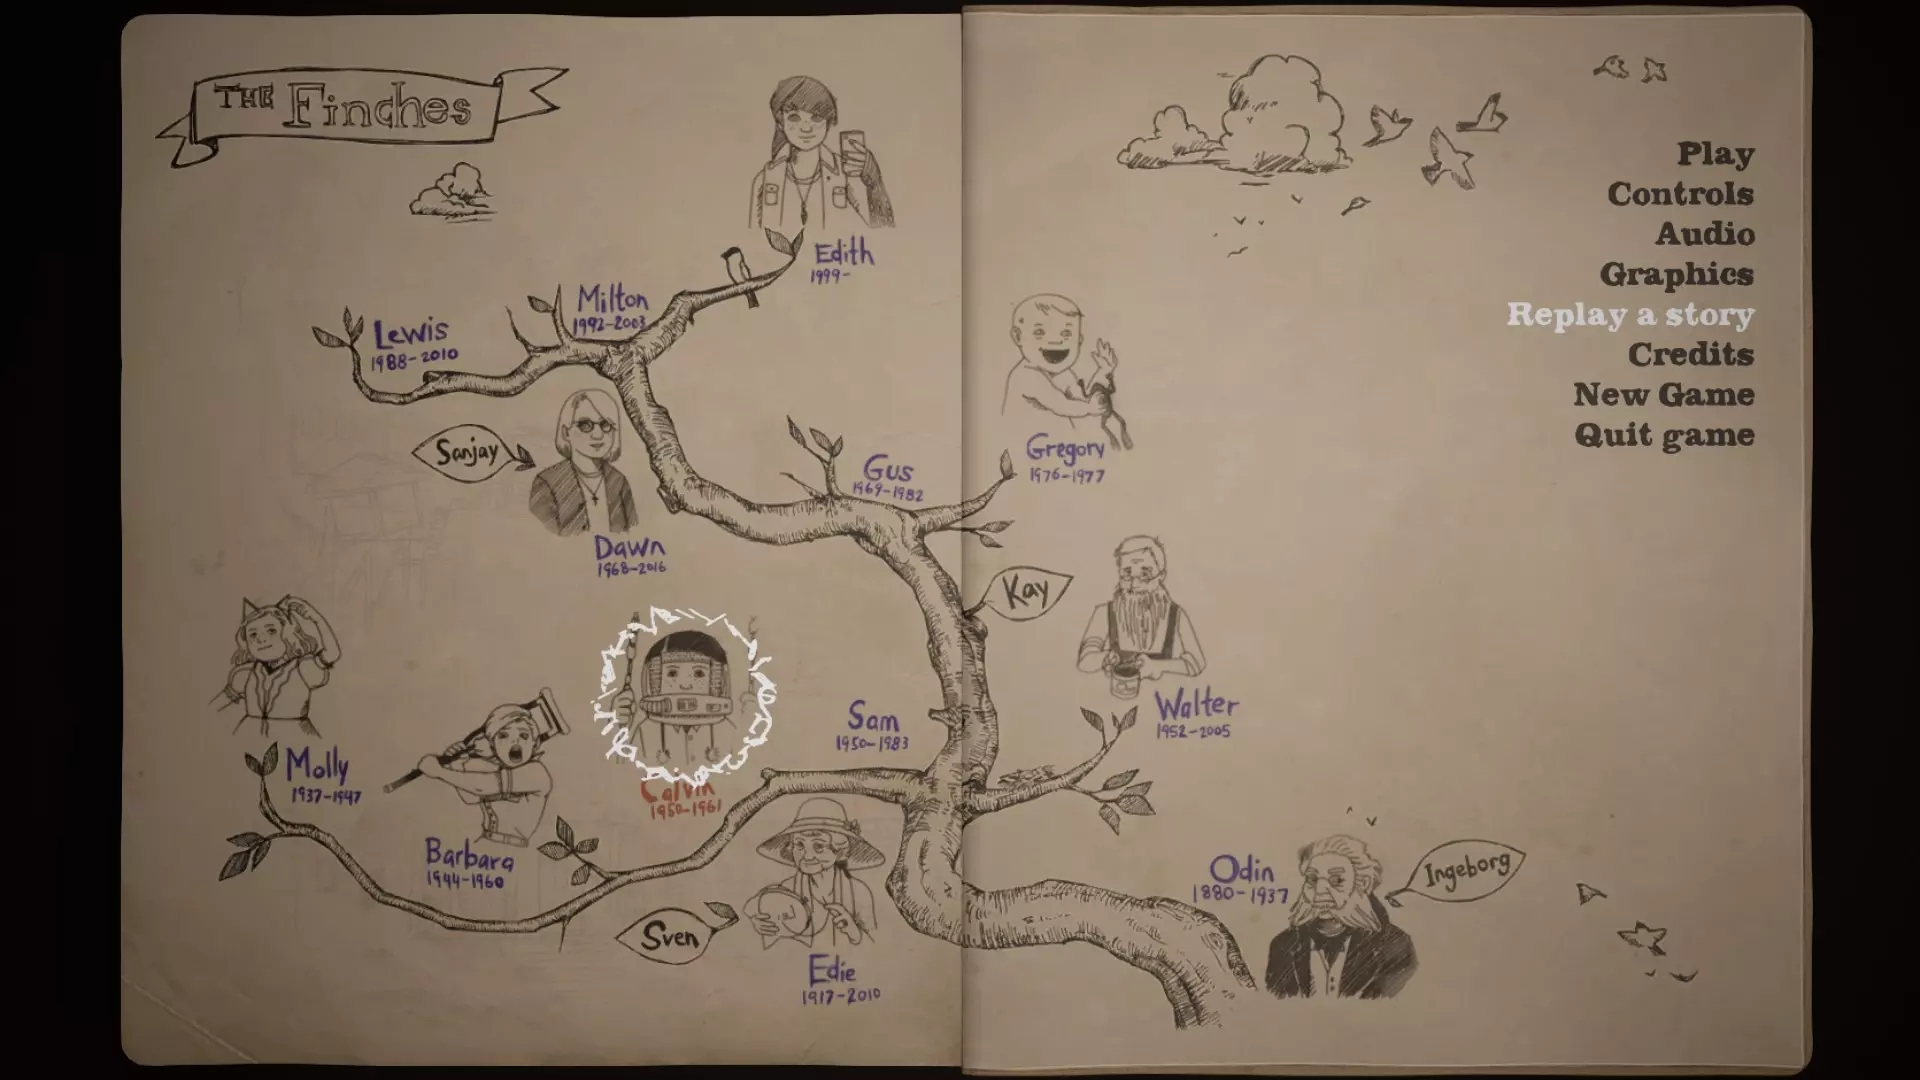 THE Finches
Edith
1999-
Milton
1992-2003
Lewis
1988-2010
Sanjay
Dawn
1968-2016
Gus
1969-1982
Gregory
1976-1977
Kay
Walter
1952-2005
Sam
1950-1983
Calvin
1950-1961
Molly
1937-1947
Barbara
1944-1960
Sven
Edie
1917-2010
Odin
1880-1937
Ingeborg
Play
Controls
Audio
Graphics
Replay a story
Credits
New Game
Quit game